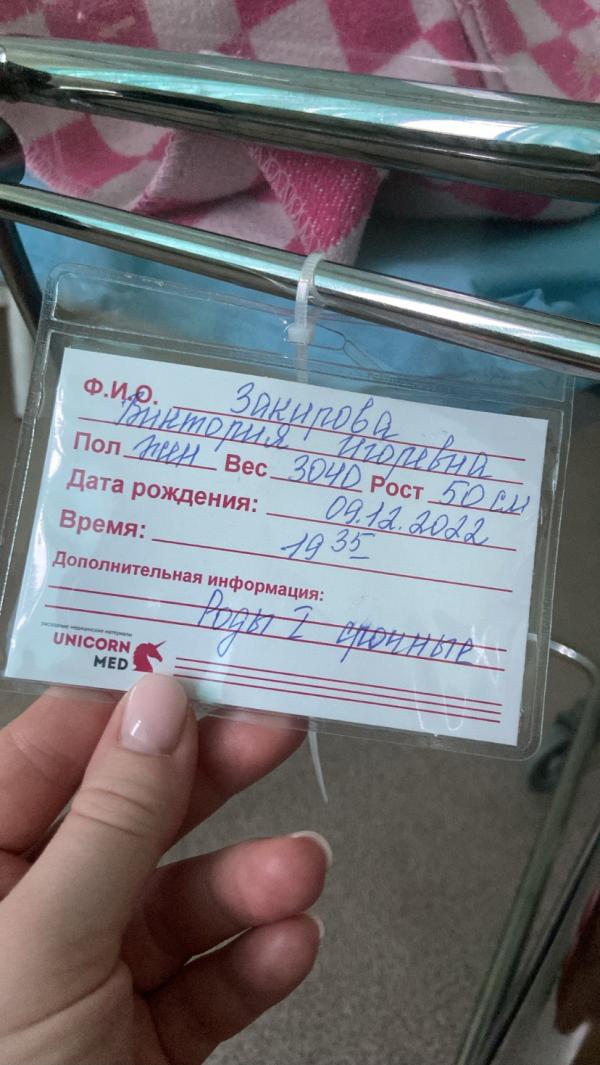 Ф.И.О. Закирова
Виктория Игоревна
Пол жен Вес 3040 Рост 50 см
Дата рождения: 09.12.2022
Время: 19 35
Дополнительная информация:
Роды I срочные
расходные медицинские материалы
UNICORN
MED